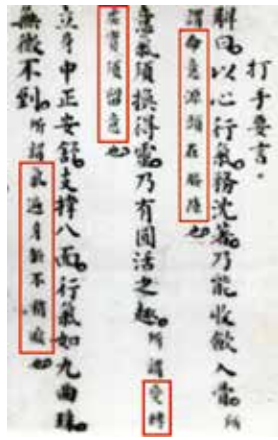 打手要言。
解曰。以心行氣。務沈著。乃能收歛入骨。所
謂命意源頭在腰隙也
意氣須換得靈。乃有圓活之趣。所謂變轉
虛實須留意也
立身中正安舒。支撐八面。行氣如九曲珠。
無微不到。所謂氣遍身軀不稍痴也